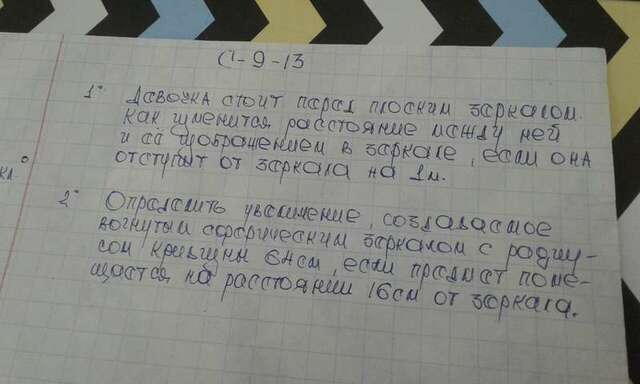 С-9-13
1° Девочка стоит перед плоским зеркалом.
Как изменится расстояние между ней
и её изображением в зеркале, если она
отступит от зеркала на 1м.
2° Определить увеличение, создаваемое
вогнутым сферическим зеркалом с радиу-
сом кривизны 64см, если предмет поме-
щается на расстоянии 16см от зеркала.